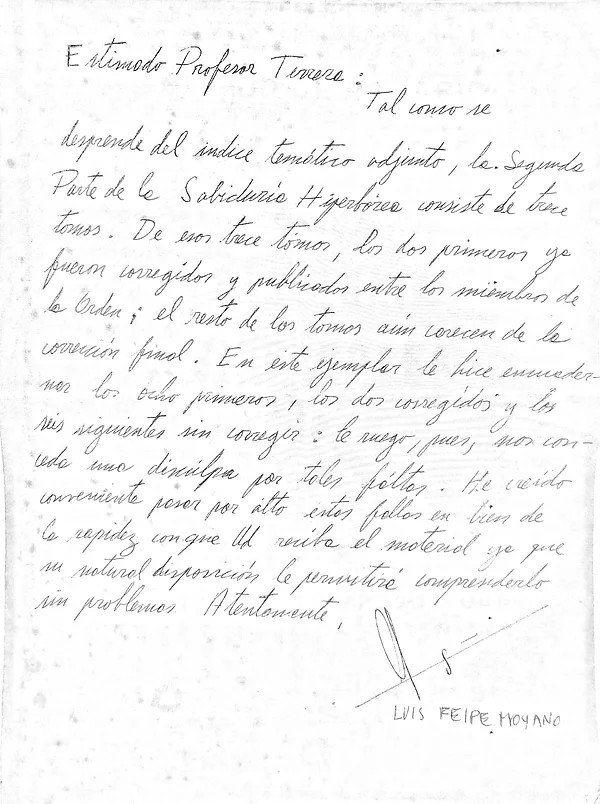 Estimado Profesor Terrera:
Tal como se
desprende del indice temático adjunto, la Segunda
Parte de la Sabiduría Hiperbórea consiste de trece
tomos. De esos trece tomos, los dos primeros ya
fueron corregidos y publicados entre los miembros de
la Orden; el resto de los tomos aún carecen de la
corrección final. En este ejemplar le hice encuader-
nar los ocho primeros, los dos corregidos y los
seis siguientes sin corregir: le ruego, pues, nos con-
ceda una disculpa por tales faltas. He creído
conveniente pasar por alto estas fallas en bien de
la rapidez con que Ud reciba el material ya que
su natural disposición le permitirá comprenderlo
sin problemas. Atentamente,
LUIS FEIPE MOYANO